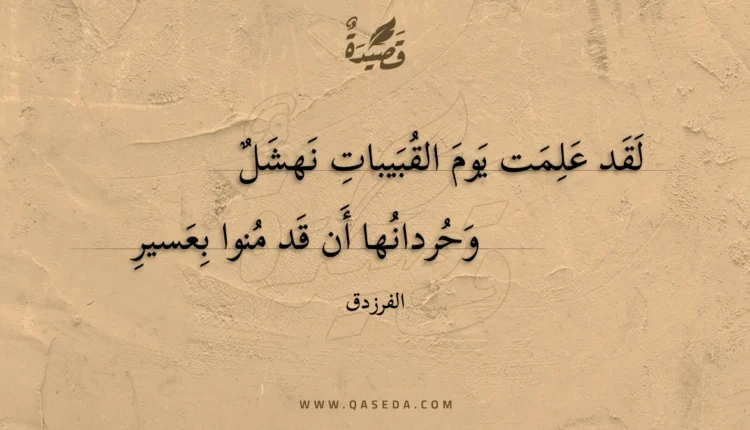 قَصِيدَةٌ
لَقَد عَلِمَت يَومَ القُبَيباتِ نَهشَلٌ
وَحُردانُها أَن قَد مُنوا بِعَسيرِ
الفرزدق
WWW.QASEDA.COM